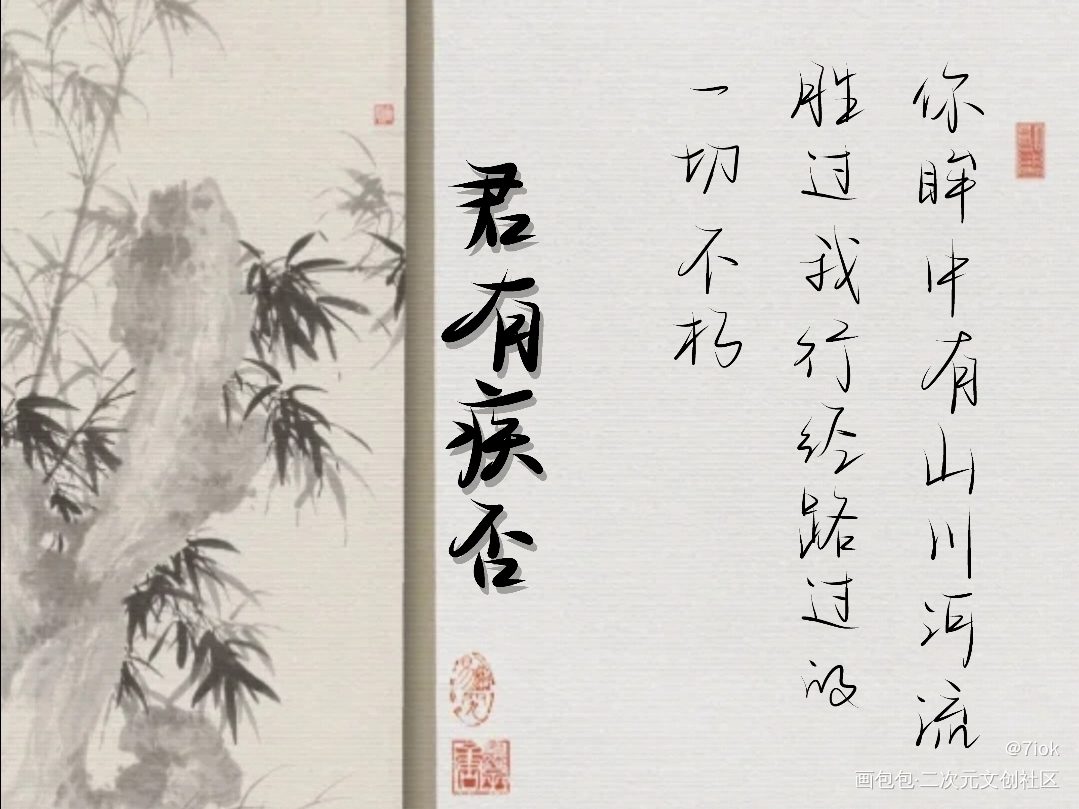 你眸中有山川河流
胜过我行经路过的
一切不朽
君有疾否
@7iok
画包包·二次元文创社区